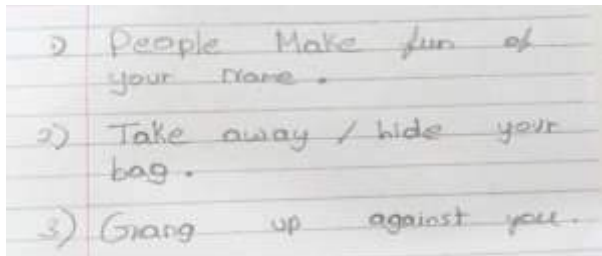 1) People Make fun of
your name.
2) Take away / hide your
bag.
3) Grang up against you.